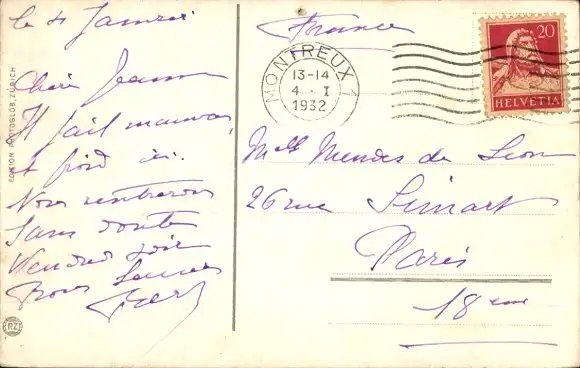 le 4 Janvier
Chère Jeanne
Il fait mauvais,
et froid ici.
Nous rentrerons
Sans doute
Vendredi soir
Bons baisers
EDITION PHOTOGLOB, ZÜRICH
PZ
France
MONTREUX 1
13-14
4 · I
1932
20
HELVETIA
Mlle Mendes de Leon
26 rue Simart
Paris
18 eme